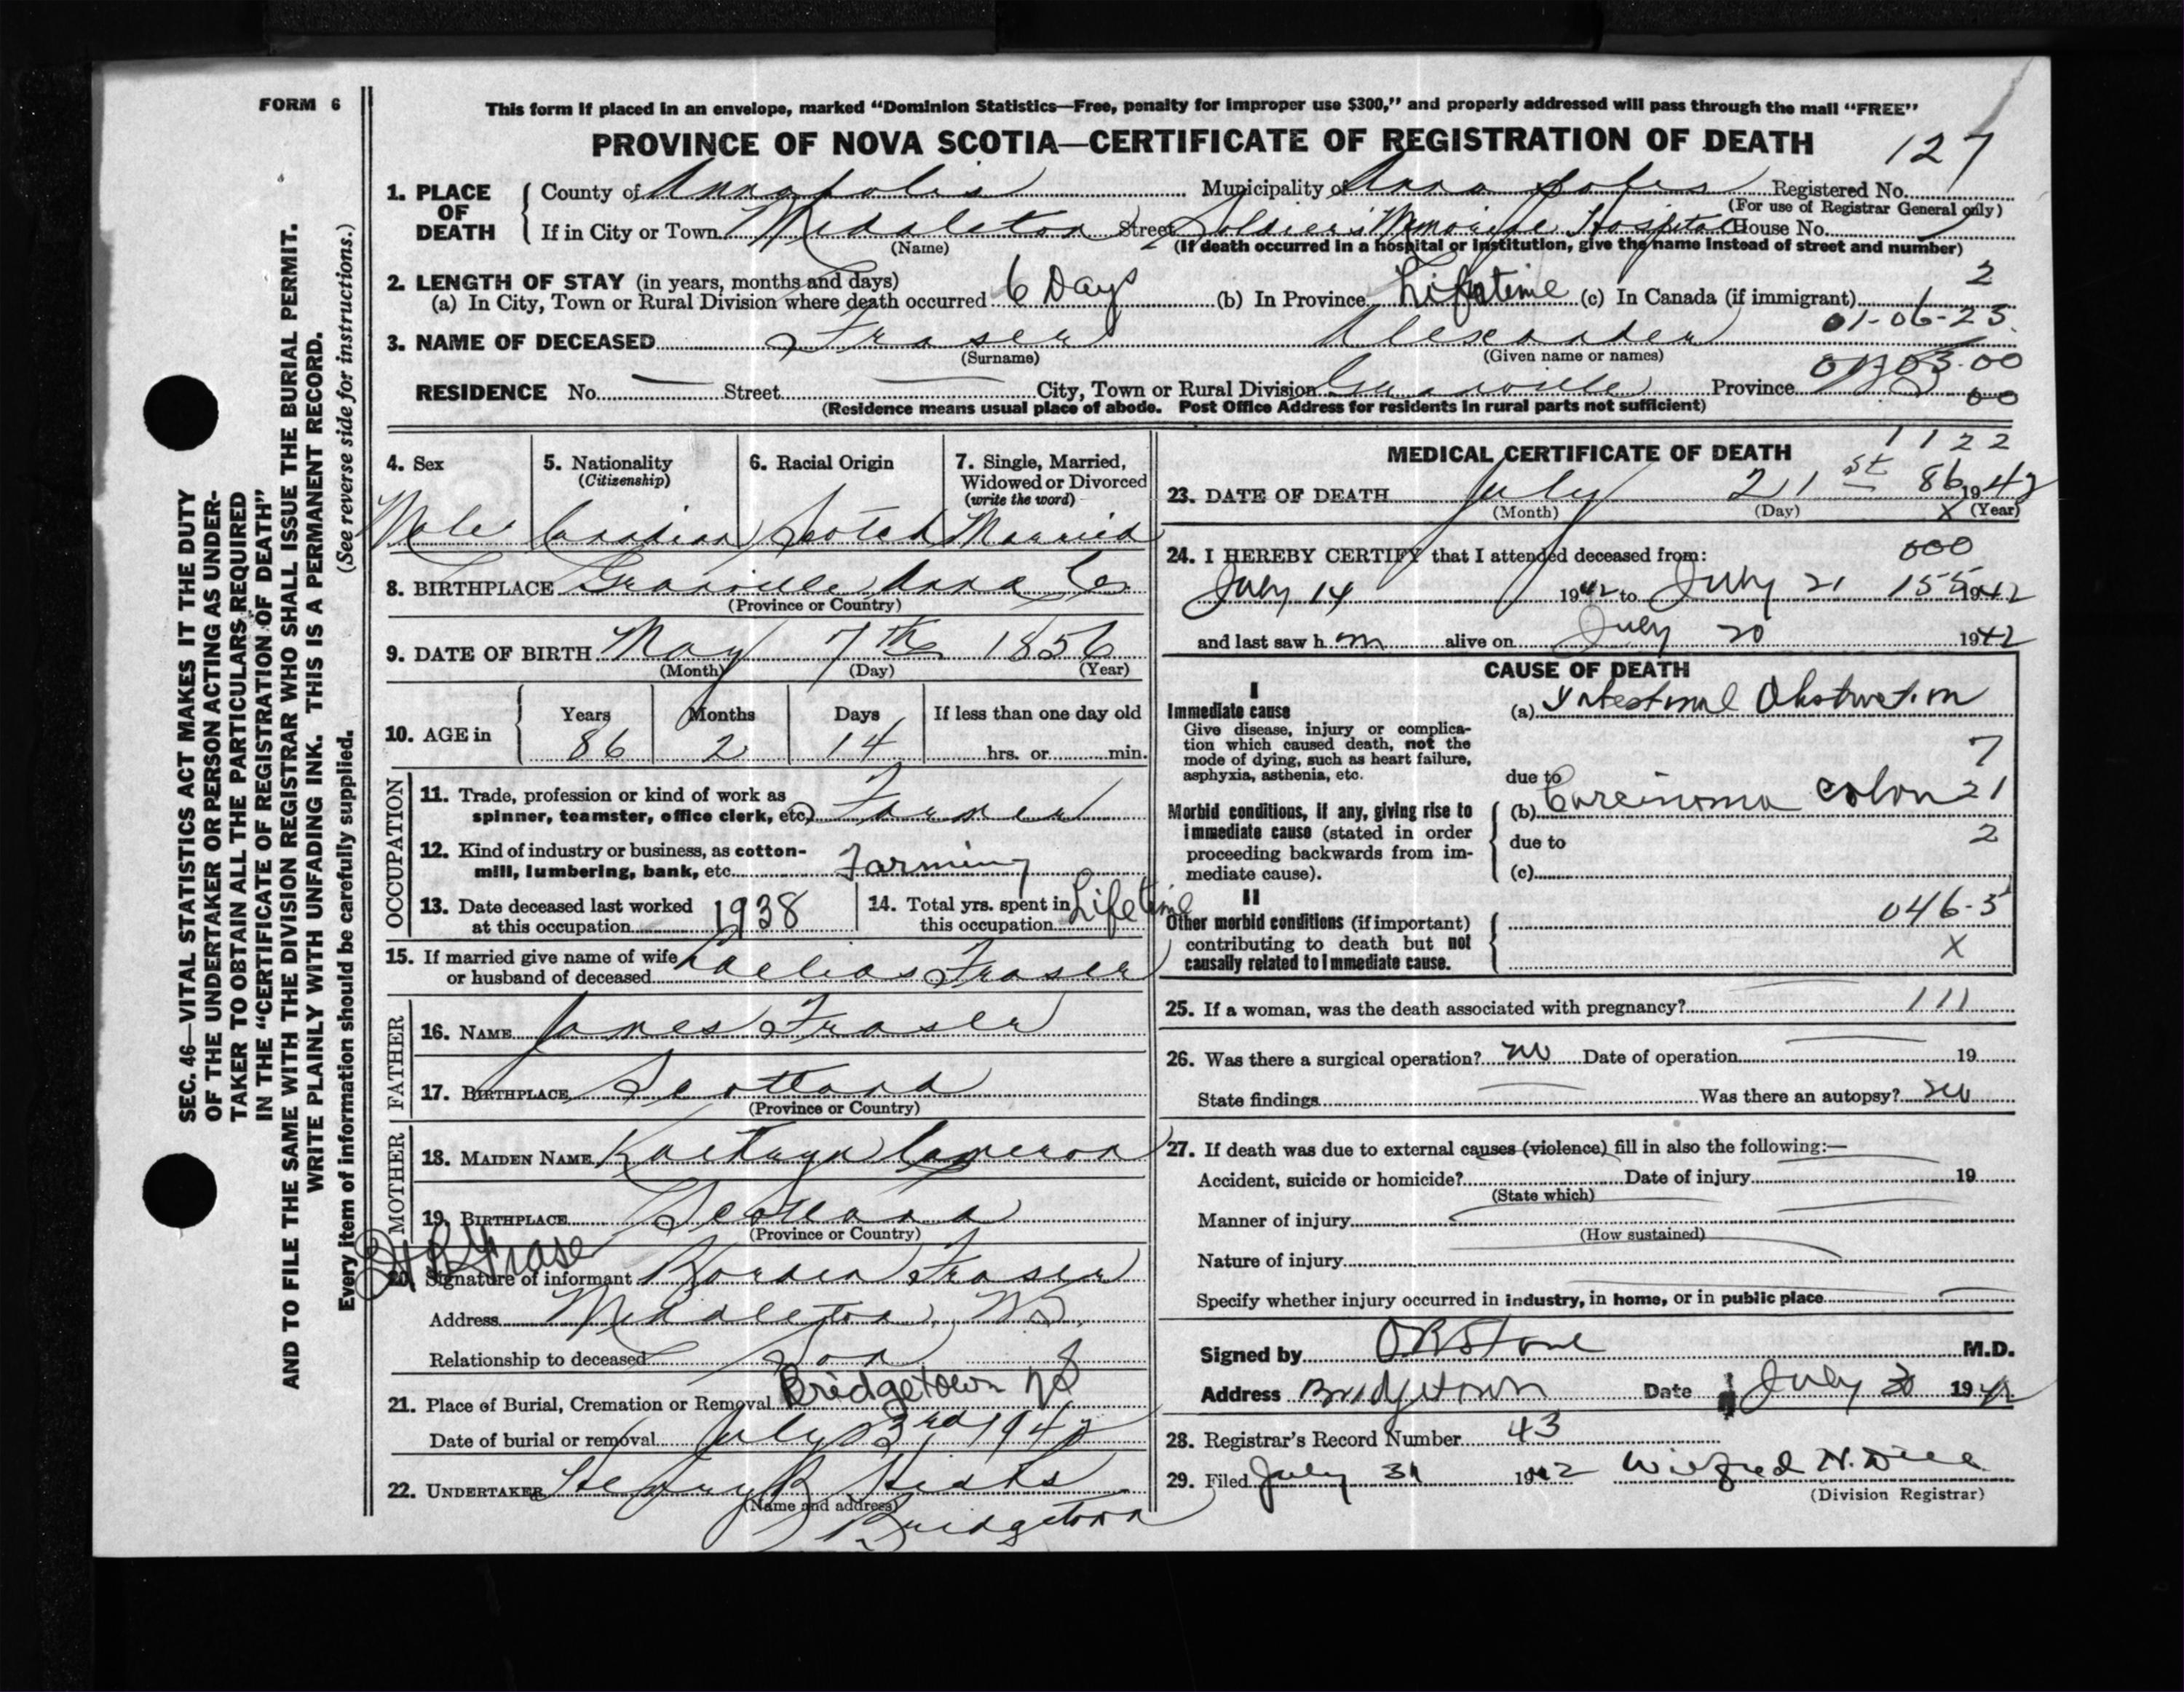 FORM 6
This form if placed in an envelope, marked “Dominion Statistics—Free, penalty for improper use $300,” and properly addressed will pass through the mail “FREE”
PROVINCE OF NOVA SCOTIA—CERTIFICATE OF REGISTRATION OF DEATH
127
1. PLACE OF DEATH { County of Annapolis Municipality of Annapolis Registered No.
(For use of Registrar General only)
If in City or Town Middleton Street Soldier's Memorial Hospital House No.
(Name) (If death occurred in a hospital or institution, give the name instead of street and number)
2. LENGTH OF STAY (in years, months and days) 2
(a) In City, Town or Rural Division where death occurred 6 Days (b) In Province Lifetime (c) In Canada (if immigrant)
01-06-23
3. NAME OF DECEASED Fraser Alexander
(Surname) (Given name or names)
03-00
RESIDENCE No. — Street — City, Town or Rural Division Granville Province NS
00
(Residence means usual place of abode. Post Office Address for residents in rural parts not sufficient)
4. Sex 5. Nationality (Citizenship) 6. Racial Origin 7. Single, Married, Widowed or Divorced (write the word)
Male Canadian Scotch Married
8. BIRTHPLACE Granville Anna Co
(Province or Country)
9. DATE OF BIRTH May 7th 1856
(Month) (Day) (Year)
10. AGE in { Years Months Days If less than one day old
86 2 14 hrs. or min.
OCCUPATION
11. Trade, profession or kind of work as spinner, teamster, office clerk, etc. Farmer
12. Kind of industry or business, as cotton-mill, lumbering, bank, etc. Farming
13. Date deceased last worked at this occupation 1938
14. Total yrs. spent in this occupation Lifetime
15. If married give name of wife or husband of deceased Fraser
FATHER
16. NAME James Fraser
17. BIRTHPLACE Scotland
(Province or Country)
MOTHER
18. MAIDEN NAME Kathryn Cameron
19. BIRTHPLACE Scotland
(Province or Country)
20. Signature of informant Borden Fraser
Address Middleton, NS.
Relationship to deceased Son
21. Place of Burial, Cremation or Removal Bridgetown NS
Date of burial or removal July 23rd 1942
22. UNDERTAKER Henry B Hicks
(Name and address)
Bridgetown
MEDICAL CERTIFICATE OF DEATH
1 1 2 2
23. DATE OF DEATH July 21st 86 1942
(Month) (Day) X (Year)
24. I HEREBY CERTIFY that I attended deceased from: 000
July 14 1942 to July 21 155 1942
and last saw h m alive on July 20 1942
CAUSE OF DEATH
I
Immediate cause
Give disease, injury or complication which caused death, not the mode of dying, such as heart failure, asphyxia, asthenia, etc.
(a) Intestinal Obstruction
7
due to
Morbid conditions, if any, giving rise to immediate cause (stated in order proceeding backwards from immediate cause).
(b) Carcinoma colon 21
due to 2
(c)
II
Other morbid conditions (if important) contributing to death but not causally related to immediate cause.
046-5
X
25. If a woman, was the death associated with pregnancy? 111
26. Was there a surgical operation? no Date of operation 19
State findings Was there an autopsy? no
27. If death was due to external causes (violence) fill in also the following:—
Accident, suicide or homicide? Date of injury 19
(State which)
Manner of injury
(How sustained)
Nature of injury
Specify whether injury occurred in industry, in home, or in public place
Signed by M.D.
Address Bridgetown Date July 1942
28. Registrar's Record Number 43
29. Filed July 31 1942 Wilfred
(Division Registrar)
SEC. 46—VITAL STATISTICS ACT MAKES IT THE DUTY
OF THE UNDERTAKER OR PERSON ACTING AS UNDER-
TAKER TO OBTAIN ALL THE PARTICULARS REQUIRED
IN THE “CERTIFICATE OF REGISTRATION OF DEATH”
AND TO FILE THE SAME WITH THE DIVISION REGISTRAR WHO SHALL ISSUE THE BURIAL PERMIT.
WRITE PLAINLY WITH UNFADING INK. THIS IS A PERMANENT RECORD.
Every item of information should be carefully supplied. (See reverse side for instructions.)